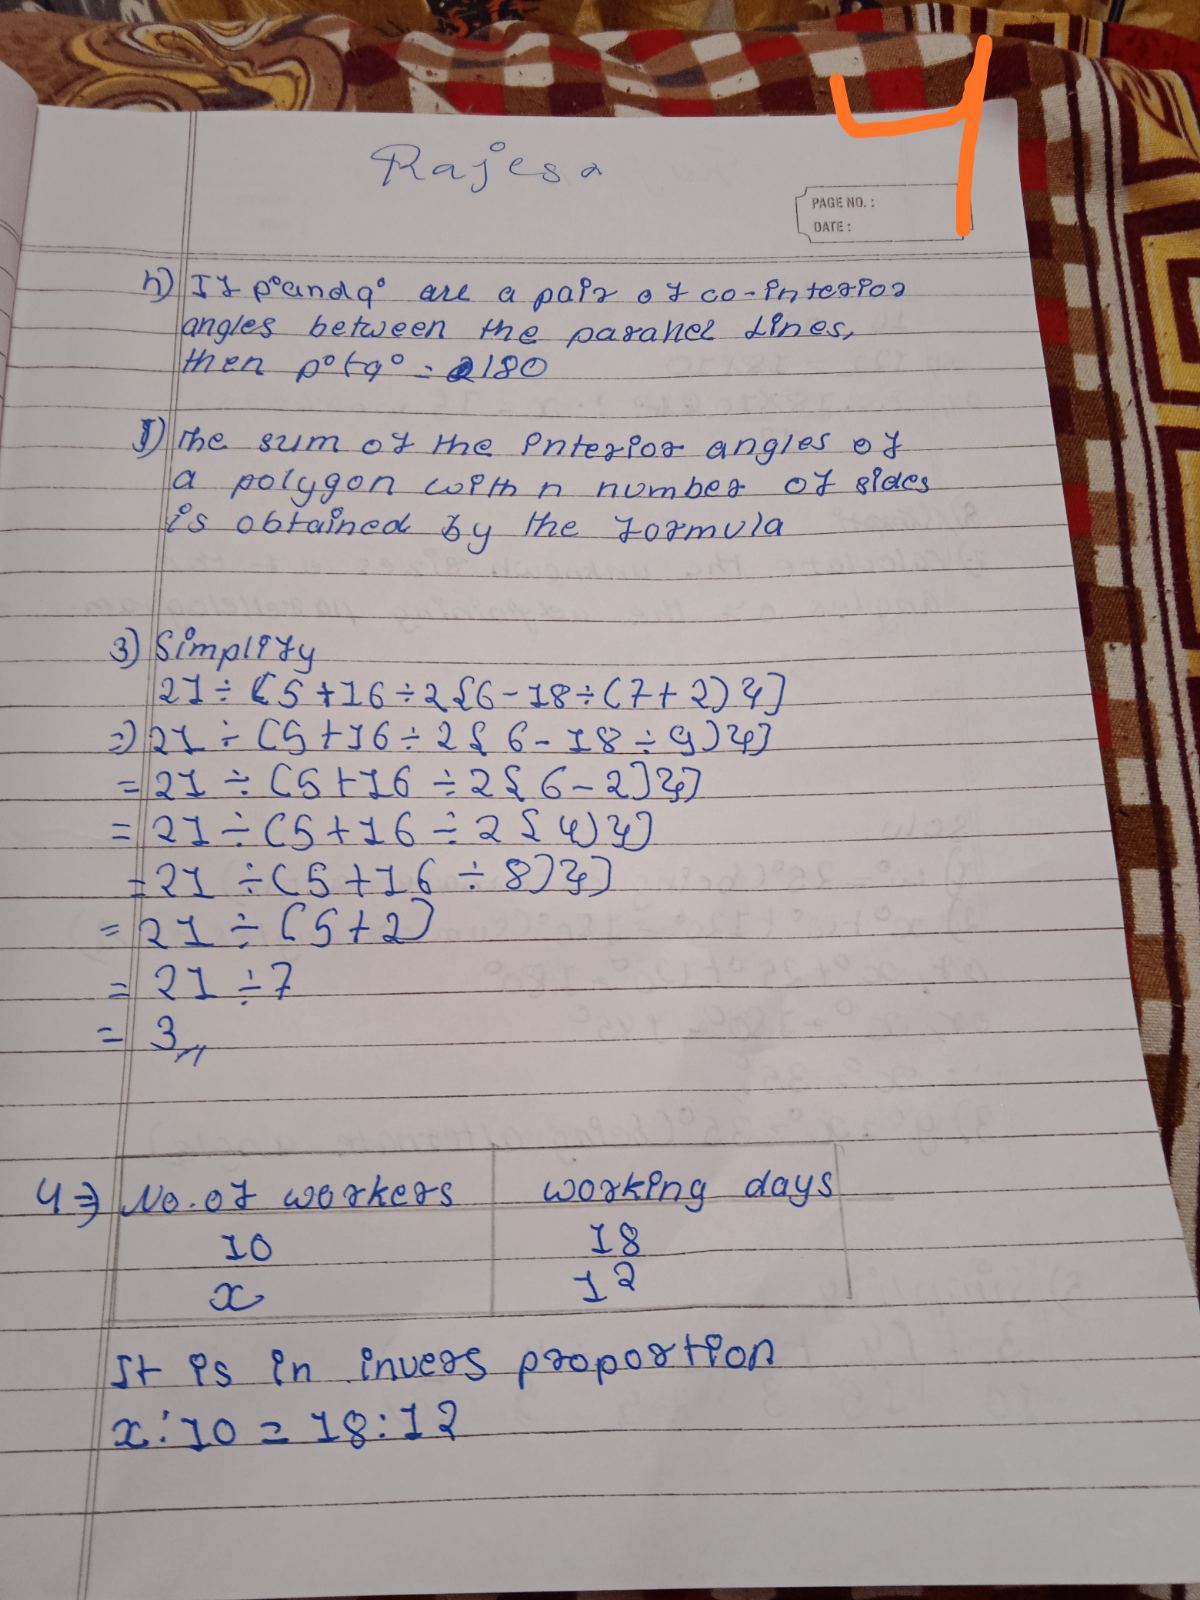 4
Rajesh
PAGE NO. :
DATE :
h) If p° and q° are a pair of co-interior
angles between the parallel lines,
then p° + q° = 180
i) The sum of the interior angles of
a polygon with n number of sides
is obtained by the formula
3) Simplify
21 ÷ [5 + 16 ÷ 2{6 - 18 ÷ (7 + 2)}]
=) 21 ÷ [5 + 16 ÷ 2{6 - 18 ÷ 9)}]
= 21 ÷ [5 + 16 ÷ 2{6 - 2)}]
= 21 ÷ [5 + 16 ÷ 2{4)}]
= 21 ÷ [5 + 16 ÷ 8)}]
= 21 ÷ [5 + 2]
= 21 ÷ 7
= 3,,
4⇒ No. of workers working days
10 18
x 12
It is in invers proportion
x : 10 = 18 : 12